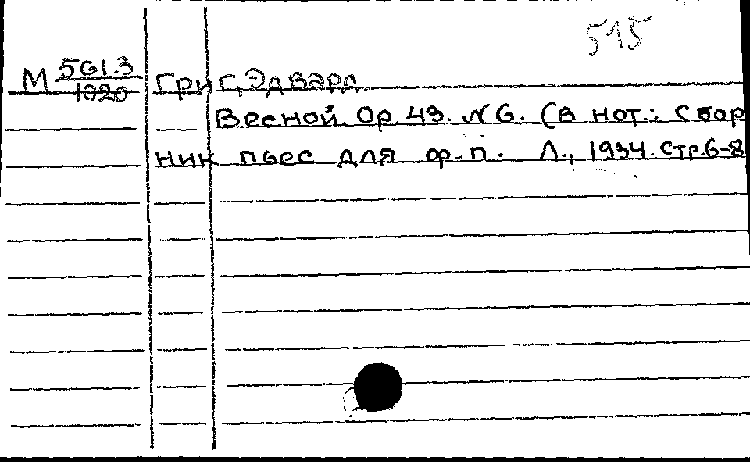 515
М 561.3 Григ, Эдвард
1020
Весной Op 43. № 6. (в нот.: Сбор
ник пьес для ф.-п. Л., 1934. Стр. 6-8